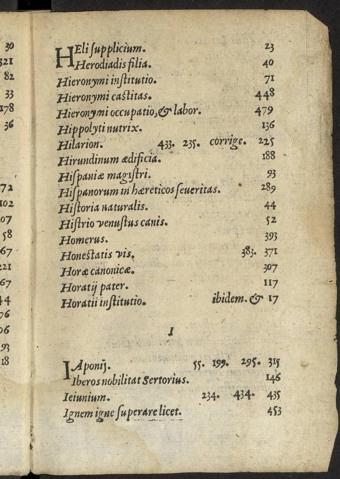 30
321
82
33
178
36
72
102
07
58
67
221
67
44
76
06
93
18
HEli supplicium. 23
Herodiadis filia. 40
Hieronymi institutio. 71
Hieronymi castitas. 448
Hieronymi occupatio, & labor. 479
Hippolyti nutrix. 136
Hilarion. 433. 235. corrige. 225
Hirundinum ædificia. 188
Hispaniæ magistri. 93
Hispanorum in hæreticos seueritas. 289
Historia naturalis. 44
Histrio venustus canis. 52
Homerus. 393
Honestatis vis. 383. 371
Horæ canonicæ. 307
Horatij pater. 117
Horatii institutio. ibidem. & 17
I
IAponij. 55. 199. 295. 315
Iberos nobilitat Sertorius. 146
Ieiunium. 234. 434. 435
Ignem igne superare licet. 453